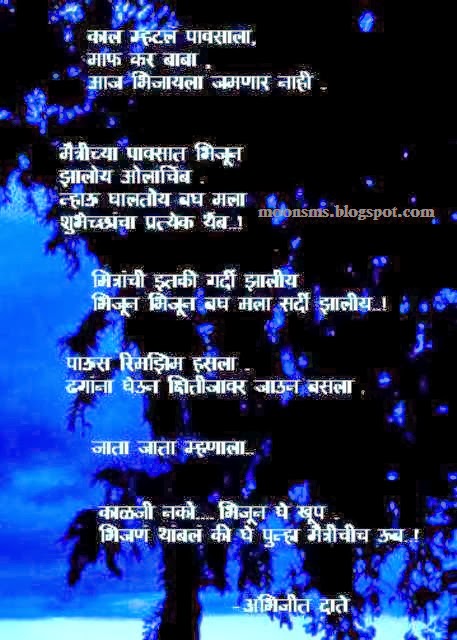 काल म्हटलं पावसाला,
माफ कर बाबा ,
आज भिजायला जमणार नाही .
मैत्रीच्या पावसात भिजून
झालोय ओलाचिंब .
न्हाऊ घालतोय बघ मला
moonsms.blogspot.com
शुभेच्छांचा प्रत्येक थेंब..!
मित्रांची इतकी गर्दी झालीय
भिजून भिजून बघ मला सर्दी झालीय..!
पाऊस रिमझिम हसला .
ढगांना घेउन क्षितीजावर जाउन बसला .
जाता जाता म्हणाला..
काळजी नको.... भिजून घे खूप .
भिजणं थांबलं की घे पुन्हा मैत्रीचीच ऊब..!
- अभिजीत दाते